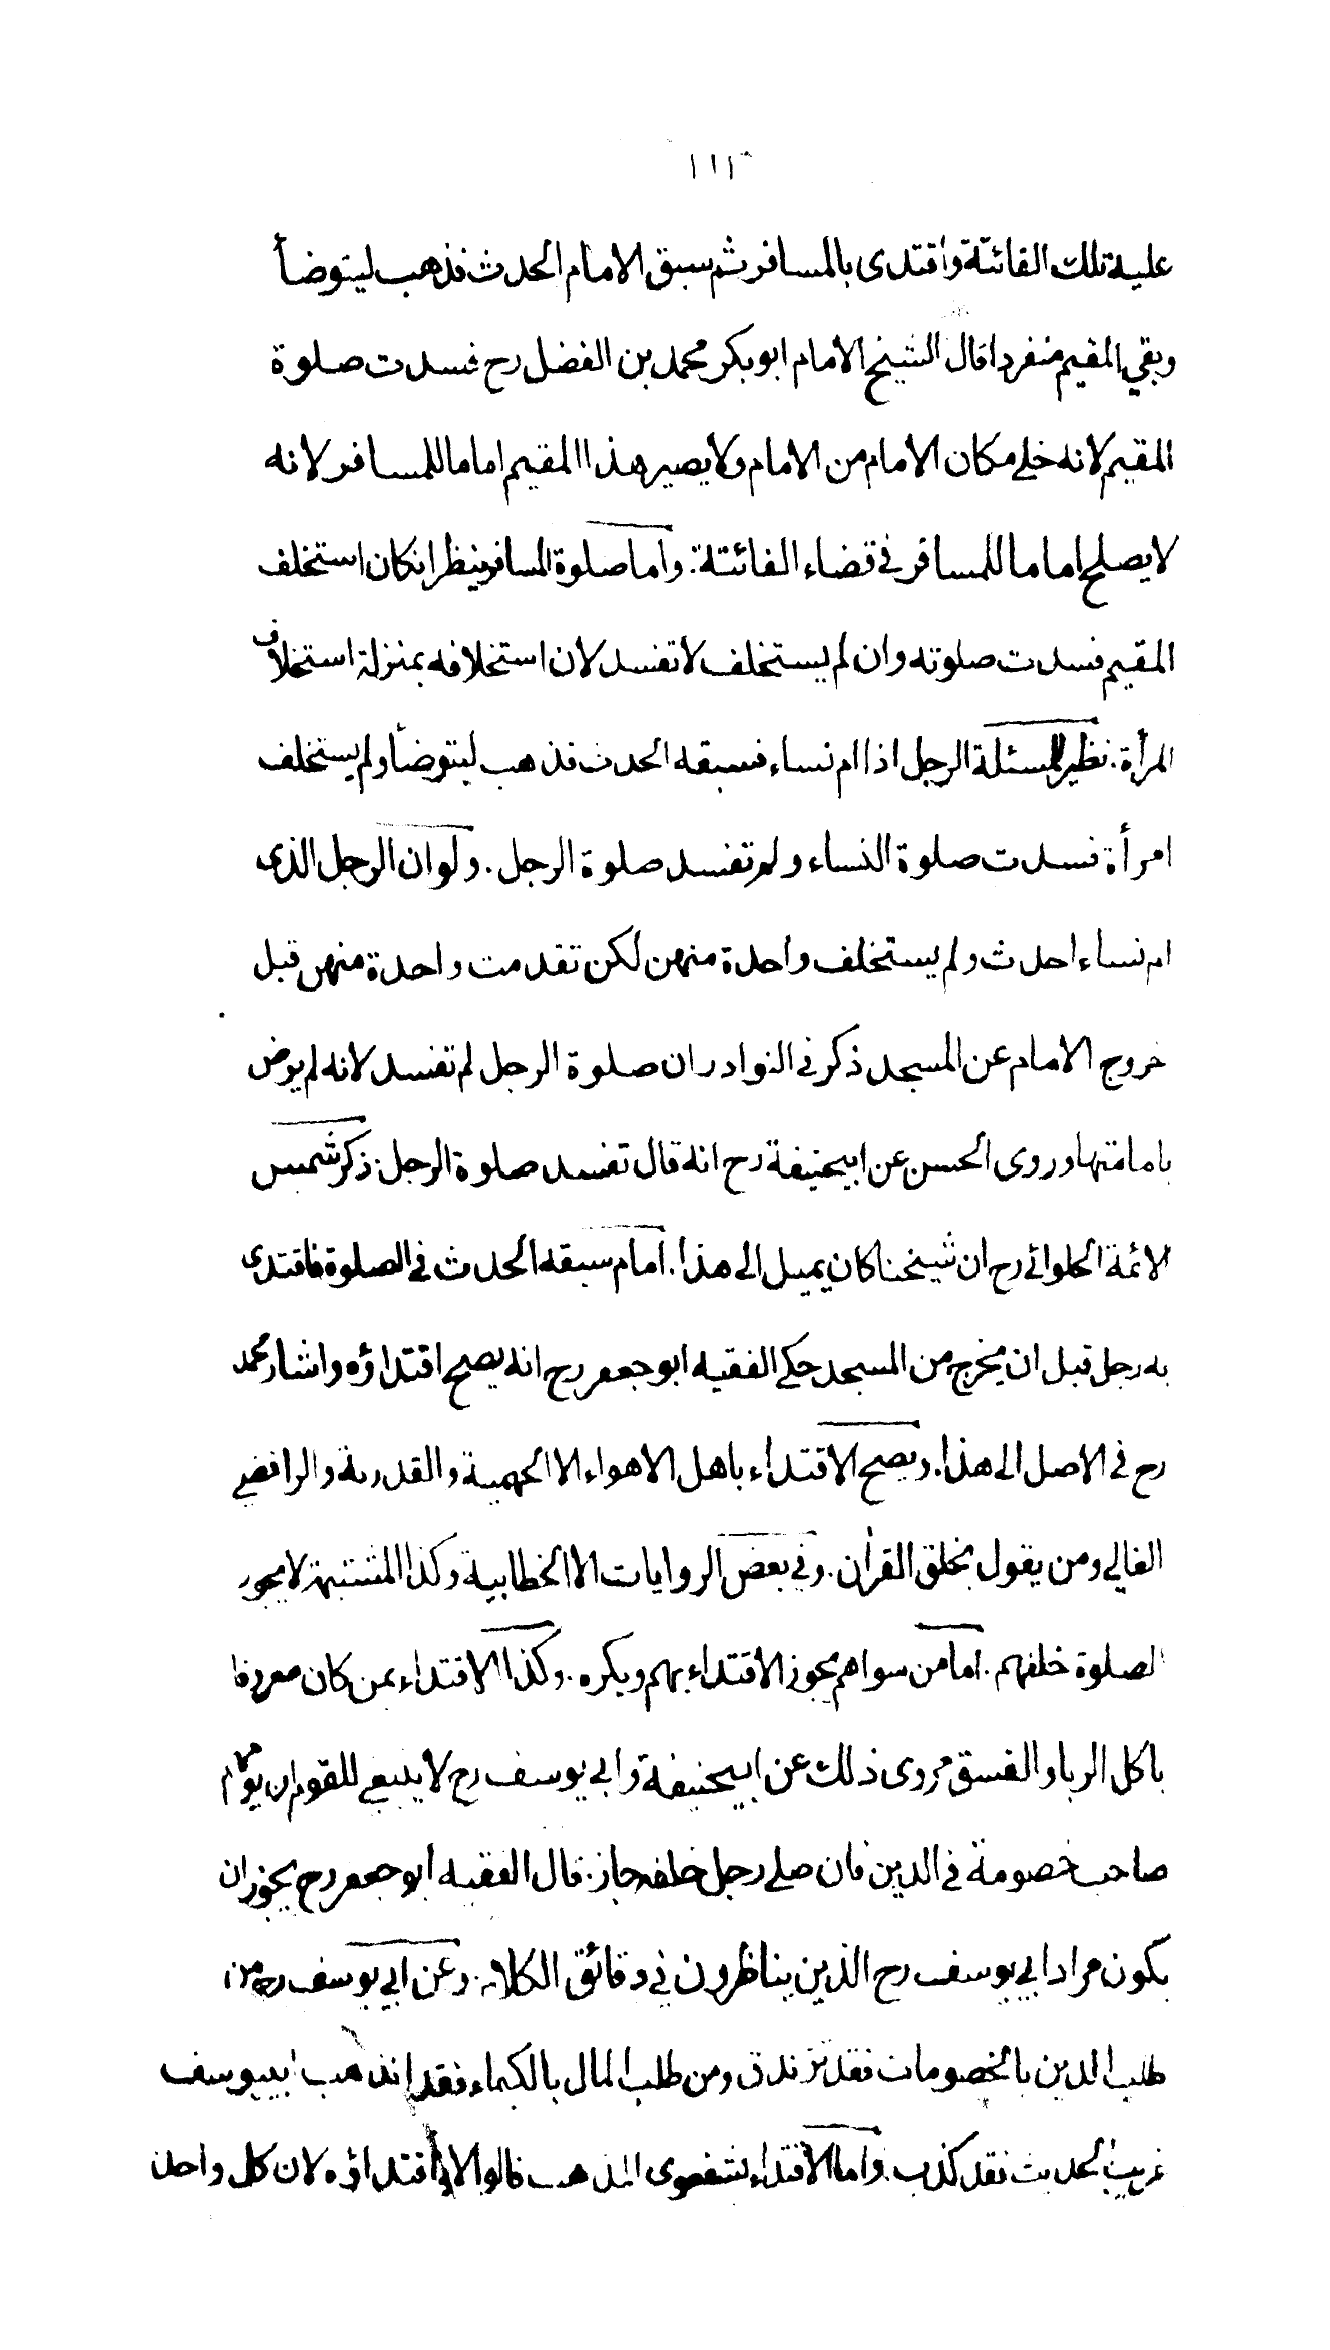 ١١٢
عليه تلك الفائتة واقتدى بالمسافر ثم سبق الامام الحدث فذهب ليتوضأ
وبقي المقيم منفردا قال الشيخ الامام ابو بكر محمد بن الفضل رح فسدت صلوة
المقيم لانه خلي مكان الامام من الامام ولا يصير هذا المقيم اماما للمسافر لانه
لا يصلح اماما للمسافر في قضاء الفائتة . واما صلوة المسافر ينظر ان كان استخلف
المقيم فسدت صلوته وان لم يستخلف لا تفسد لان استخلافه بمنزلة استخلاف
المرأة . نظير المسئلة الرجل اذا ام نساء فسبقه الحدث فذهب ليتوضأ ولم يستخلف
امرأة فسدت صلوة النساء ولم تفسد صلوة الرجل . ولو ان الرجل الذى
ام نساء احدث ولم يستخلف واحدة منهن لكن تقدمت واحدة منهن قبل
خروج الامام عن المسجد ذكر في النوادر ان صلوة الرجل لم تفسد لانه لم يرض
بامامتها وروى الحسن عن ابيحنيفة رح انه قال تفسد صلوة الرجل . ذكر شمس
الائمة الحلوائي رح ان شيخنا كان يميل الى هذا . امام سبقه الحدث في الصلوة فاقتدى
به رجل قبل ان يخرج من المسجد حكي الفقيه ابو جعفر رح انه يصح اقتداؤه واشار محمد
رح في الاصل الى هذا . ويصح الاقتداء باهل الاهواء الا الجهمية والقدرية والرافضي
الغالي ومن يقول بخلق القرأن . وفي بعض الروايات الا الخطابية وكذا المشتبهة لا يجوز
الصلوة خلفهم . اما من سواهم يجوز الاقتداء بهم ويكره . وكذا الاقتداء بمن كان معروفا
باكل الربا والفسق مروى ذلك عن ابيحنيفة وابي يوسف رح لا ينبغي للقوم ان يؤمهم
صاحب خصومة في الدين فان صلى رجل خلفه جاز . قال الفقيه ابو جعفر رح يجوز ان
يكون مراد ابي يوسف رح الذين يناظرون في دقائق الكلام . وعن ابي يوسف رح من
طلب الدين بالخصومات فقد تزندق ومن طلب المال بالكيماء فقد
غريب الحديث فقد كذب . واما الاقتداء بشفعوى المذهب قالوا اقتداؤه لان كل واحد